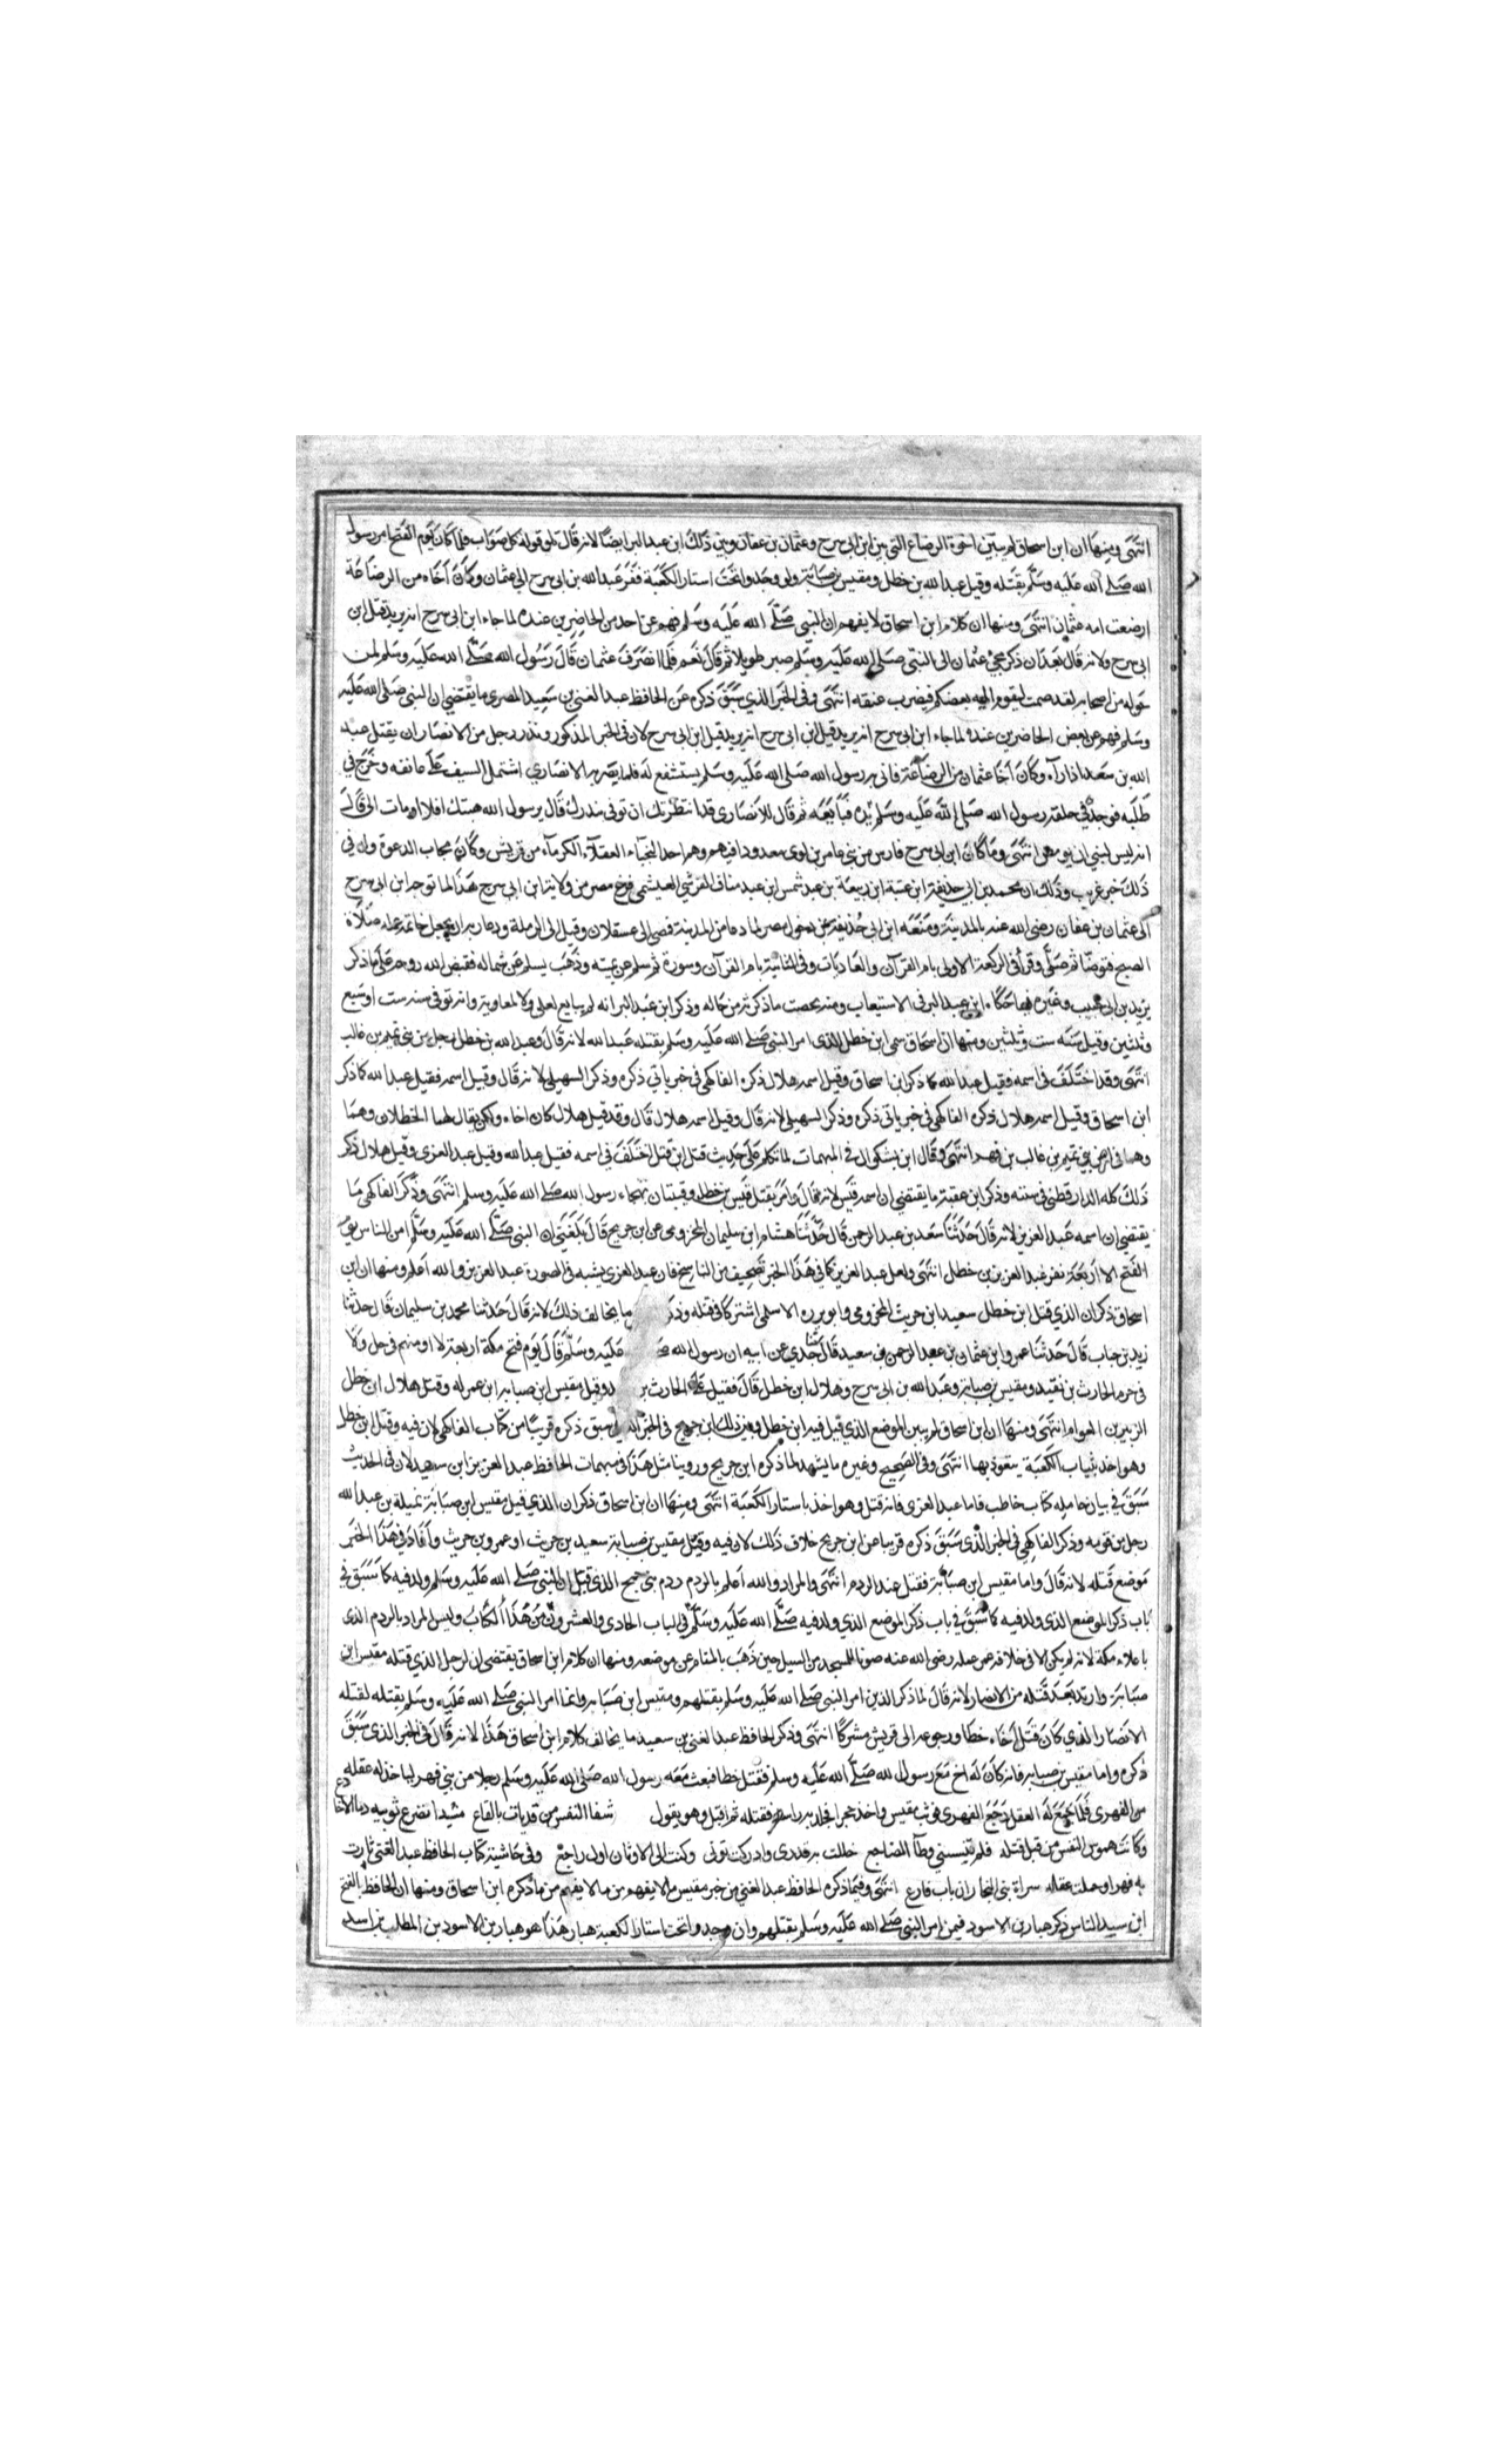 انتهى ومنها ان ابن اسحاق لم يبين اخوة الرضاع التي بين ابن ابي سرح وعثمان بن عفان وبين ذلك ابن عبد البر ايضا لانه قال تلو قوله كل صواب فلما كان يوم الفتح امر رسول
الله صلى الله عليه وسلم بقتله وقيل عبد الله بن خطل ومقيس بن صبابة ولو وجدوا تحت استار الكعبة ففر عبد الله بن ابي سرح الى عثمان وكان اخاه من الرضاعة
ارضعت امه عثمان انتهى ومنها ان كلام ابن اسحاق لا يفهم ان النبي صلى الله عليه وسلم فهم عن احد من الحاضرين عنده لما جاء ابن ابي سرح انه يريد قتل ابن
ابي سرح ولانه قال بعد ان ذكر مجئ عثمان الى النبي صلى الله عليه وسلم صبر طويلا ثم قال نعم فلما انصرف عثمان قال رسول الله صلى الله عليه وسلم لمن
حوله من اصحابه لقد صمت ليقوم اليه بعضكم فيضرب عنقه انتهى وفي الخبر الذي سبق ذكره عن الحافظ عبد الغني بن سعيد المصري ما يقتضي ان النبي صلى الله عليه
وسلم فهم عن بعض الحاضرين عنده لما جاء ابن ابي سرح انه يريد قيل ابن ابي سرح انه يريد قيل ابن ابي سرح لان في الخبر المذكور ونذر رجل من الانصار ان يقتل عبد
الله بن سعد اذا رآه وكان اخا عثمان من الرضاعة فاتى به رسول الله صلى الله عليه وسلم يستشفع له فلما بصر به الانصاري اشتمل السيف على عاتقه وخرج في
طلبه فوجده في حلقة رسول الله صلى الله عليه وسلم يده فبايعه ثم قال للانصاري قد انتظرتك ان توفي نذرك قال يرسول الله هبتك افلا اومات الى قال
انه ليس لنبي ان يومض انتهى وما كان ابن ابي سرح فارس من بني عامر بن لوي معدودا فيهم وهو احد النجباء العقلاء الكرماء من قريش وكان مجاب الدعوة وله في
ذلك خبر غريب وذلك ان محمد بن ابي حذيفة ابن عتبة ابن ربيعة بن عبد شمس ابن عبد مناف القرشي العبشمي من ولاية ابن ابي سرح هذا لما توجه ابن ابي سرح
الى عثمان بن عفان رضي الله عنه بالمدينة ومنعه ابن ابي حذيفة عن دخول مصر لما عاد من المدينة فمضى الى عسقلان وقيل الى الرملة ودعا ربه ان يجعل خاتمة عمله صلاة
الصبح فتوضا ثم صلى وقرأ في الركعة الاولى بام القرآن والعاديات وفي الثانية بام القرآن وسورة ثم سلم عن يمينه وذهب يسلم عن شماله فقبض الله روحه على ما ذكر
يزيد بن ابي حبيب وغيره فيما حكاه ابن عبد البر في الاستيعاب ومنه لخصت ما ذكرته من حاله وذكر ابن عبد البر انه لم يبايع لعلي ولا لمعاوية وانه توفي سنة ست او سبع
وثلثين وقيل سنة ست وثلثين ومنها ان اسحاق سمى ابن خطل الذي امر النبي صلى الله عليه وسلم بقتله عبد الله لانه قال وعبد الله بن خطل رجل من بني تميم بن غالب
انتهى وقد اختلف في اسمه فقيل عبد الله كما ذكر ابن اسحاق وقيل اسمه هلال ذكره الفاكهي في خبر ياتي ذكره وذكر السهيلي لانه قال وقيل اسمه فقيل عبد الله كما ذكر
ابن اسحاق وقيل اسمه هلال ذكره الفاكهي في خبر ياتي ذكره وذكر السهيلي لانه قال وقيل اسمه هلال قال وقد قيل هلال كان اخاه وكان يقال لهما الخطلان وهما
وهما في بني تميم بن غالب بن فهر انتهى وقال ابن بشكوال في المبهمات لما تكلم على حديث قتل ابن قتل اختلف في اسمه فقيل عبد الله وقيل عبد العزى وقيل هلال ذكر
ذلك كله الدارقطني في سننه وذكر ابن عقبة ما يقتضي ان اسمه قيس لانه قال وامر بقتل قيس بن خطل وقينتان بهجاء رسول الله صلى الله عليه وسلم انتهى وذكر الفاكهي ما
يقتضي ان اسمه عبد العزيز لانه قال حدثنا سعد بن عبد الرحمن قال حدثنا هشام ابن سليمان المخزومي عن ابن جريج قال بلغني ان النبي صلى الله عليه وسلم امن الناس يوم
الفتح الا اربعة نفر عبد العزيز بن خطل انتهى ولعل عبد العزيز كما في هذا الخبر تصحيف من الناسخ فان عبد العزى يشبه في الصورة عبد العزيز والله اعلم ومنها ان ابن
اسحاق ذكر ان الذي قتل ابن خطل سعيد ابن حريث المخزومي وابو برزه الاسلمي اشتركا في قتله وذكر ما يخالف ذلك لانه قال حدثنا محمد بن سليمان قال حدثنا
زيد بن حباب قال حدثنا عمرو ابن عثمان بن عبد الرحمن بن سعيد قال حدثنا جدي عن ابيه ان رسول الله عليه وسلم قال يوم فتح مكة اربعة لا اومنهم في حل ولا
في حرم الحارث بن نقيد ومقيس بن صبابة وعبد الله بن ابي سرح وهلال ابن خطل قال فقيل علي الحارث بن وقيل مقيس ابن صبابه ابن عم له وقتل هلال ابن خطل
الزبير بن العوام انتهى ومنها ان ابن اسحاق لم يبين الموضع الذي قيل فيه ابن خطل وبين ذلك ابن جريج في الخبر الذي سبق ذكره قريبا من كتاب الفاكهي لان فيه وقتل ابن خطل
وهو اخذ بثياب الكعبة يتعوذ بها انتهى وفي الصحيح وغيره ما يشهد لما ذكره ابن جريج وروينا مثل هذا في مبهمات الحافظ عبد العزيز ابن سعيد لان في الحديث
سبق في بيان حامله كتاب خاطب فاما عبد العزى فانه قتل وهو اخذ باستار الكعبة انتهى ومنها ان ابن اسحاق ذكر ان الذي قيل مقيس ابن صبابة نميلة بن عبد الله
رجل من قومه وذكر الفاكهي في الخبر الذي سبق ذكره قريبا من ابن جريج خلاف ذلك لان فيه وقيل مقيس بن صبابة سعيد بن حريث او عمرو بن حريث وافاد في هذا الخبر
موضع قتله لانه قال واما مقيس ابن صبابة فقتل عند الردم انتهى والمراد والله اعلم بالردم ردم بني جمح الذي قيل ان النبي صلى الله عليه وسلم ولد فيه كما سبق في
باب ذكر الموضع الذي ولد فيه كما سبق في باب ذكر الموضع الذي ولد فيه صلى الله عليه وسلم في الباب الحادي والعشرون من هذا الكتاب وليس المراد بالردم الذي
باعلاء مكة لانه لم يكن الا في خلافة عمر عمله رضي الله عنه صونا للمسجد من السيل حين ذهب بالمقام عن موضعه ومنها ان كلام ابن اسحاق يقتضي ان الرجل الذي قتله مقيس ابن
صبابة وارتد بعد قتله من الانصار لانه قال لما ذكر الذين امر النبي صلى الله عليه وسلم بقتلهم ومقيس ابن صبابه وانما امر النبي صلى الله عليه وسلم بقتله لقتله
الانصار الذي كان قتل اخاه خطا ورجوعه الى قريش مشركا انتهى وذكر الحافظ عبد الغني بن سعيد ما يخالف كلام ابن اسحاق هذا لانه قال في الخبر الذي سبق
ذكره واما مقيس بن صبابه فانه كان له اخ مع رسول الله صلى الله عليه وسلم فقتل خطا فبعث معه رسول الله صلى الله عليه وسلم رجلا من بني فهر لياخذ له عقله
من الفهري فلما جمع له العقل رجع الفهري فوثب مقيس واخذ حجرا فجلد به راسه فقتله ثم اقبل وهو يقول شفا النفس من قد بات بالقاع مشيدا تضرع ثوبيه دما الاخادع
وكانت هموم النفس من قبل قتله فلم تنسيني وطآ المضاجع حللت به قدري وادركت ثوتي وكنت الى الاوثان اول راجع وفي حاشية كتاب الحافظ عبد الغني ثارت
به فهرا وحملت عقله سراة بني النجار ان باب فارع انتهى وفيما ذكره الحافظ عبد الغني من خبر مقيس ما لا يفهم من ما لا يفهم من ما ذكره ابن اسحاق ومنها ان الحافظ بالفتح
ابن سيد الناس ذكر هبار بن الاسود فيمن امر النبي صلى الله عليه وسلم بقتلهم وان وجدوا تحت استار الكعبة هبار هذا هو هبار بن الاسود بن المطلب بن اسد